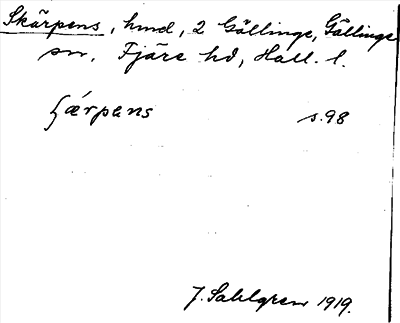 Skärpens, hmd, 2 Gällinge, Gällinge
sn, Fjäre hd, Hall. l.
ʃä́rpens s.98
J. Sahlgren 1919.